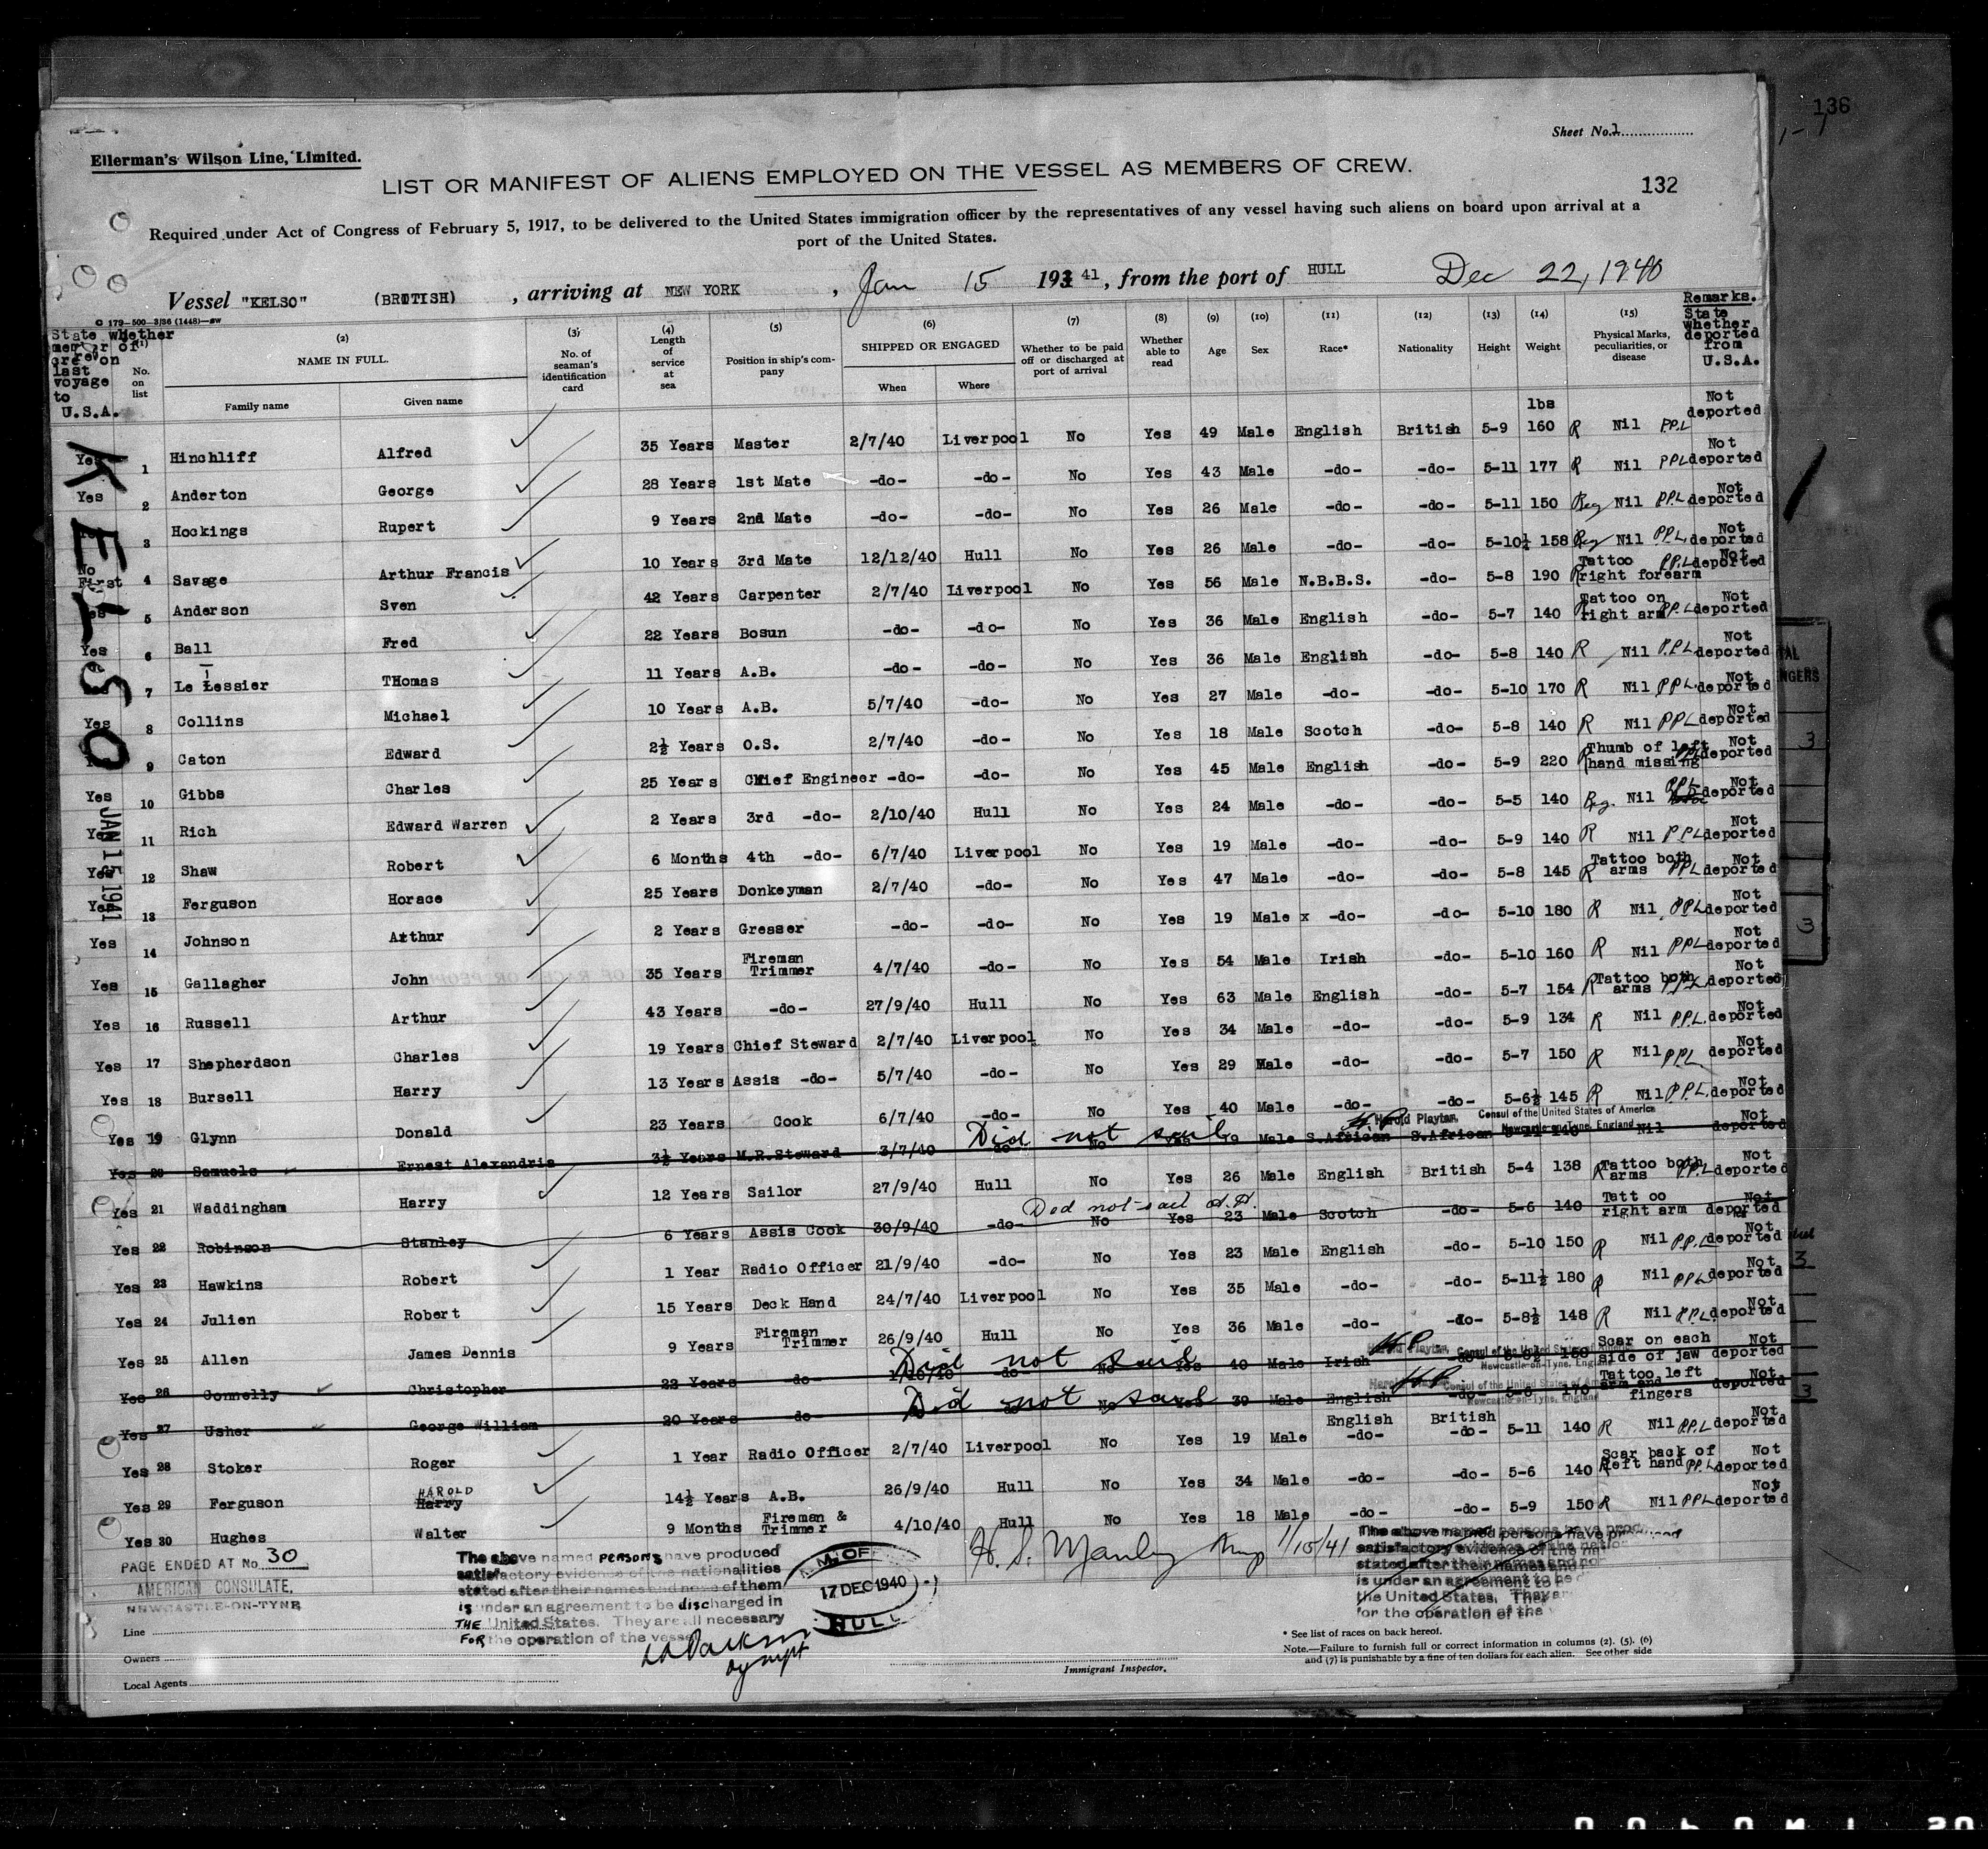 136
Sheet No.1
Ellerman's Wilson Line, Limited.
LIST OR MANIFEST OF ALIENS EMPLOYED ON THE VESSEL AS MEMBERS OF CREW.
132
Required under Act of Congress of February 5, 1917, to be delivered to the United States immigration officer by the representatives of any vessel having such aliens on board upon arrival at a
port of the United States.
Vessel "KELSO" (BRITISH), arriving at NEW YORK, Jan 15 193 41, from the port of HULL Dec 22, 1940
State whether member of crew on last voyage to U.S.A. (1) No. on list (2) NAME IN FULL. Family name Given name (3) No. of seaman's identification card (4) Length of service at sea (5) Position in ship's company (6) SHIPPED OR ENGAGED When Where (7) Whether to be paid off or discharged at port of arrival (8) Whether able to read (9) Age (10) Sex (11) Race* (12) Nationality (13) Height (14) Weight (15) Physical Marks, peculiarities, or disease Remarks. State whether deported from U.S.A.
lbs
KELSO
JAN 15 1941
Yes 1 Hinchliff Alfred 35 Years Master 2/7/40 Liverpool No Yes 49 Male English British 5-9 160 R Nil P.P.L Not deported
Yes 2 Anderton George 28 Years 1st Mate -do- -do- No Yes 43 Male -do- -do- 5-11 177 R Nil PPL Not deported
3 Hockings Rupert 9 Years 2nd Mate -do- -do- No Yes 26 Male -do- -do- 5-11 150 Reg Nil P.P.L Not deported
No First 4 Savage Arthur Francis 10 Years 3rd Mate 12/12/40 Hull No Yes 26 Male -do- -do- 5-10½ 158 Reg Nil P.P.L. Not deported
Yes 5 Anderson Sven 42 Years Carpenter 2/7/40 Liverpool No Yes 56 Male N.B.B.S. -do- 5-8 190 R Tattoo right forearm P.P.L Not deported
Yes 6 Ball Fred 22 Years Bosun -do- -do- No Yes 36 Male English -do- 5-7 140 R Tattoo on right arm P.P.L Not deported
7 Le Lessier THomas 11 Years A.B. -do- -do- No Yes 36 Male English -do- 5-8 140 R Nil P.P.L Not deported
Yes 8 Collins Michael 10 Years A.B. 5/7/40 -do- No Yes 27 Male -do- -do- 5-10 170 R Nil P.P.L. Not deported
9 Caton Edward 2½ Years O.S. 2/7/40 -do- No Yes 18 Male Scotch -do- 5-8 140 R Nil PPL Not deported
Yes 10 Gibbs Charles 25 Years Chief Engineer -do- -do- No Yes 45 Male English -do- 5-9 220 R Thumb of left hand missing PPL Not deported
Yes 11 Rich Edward Warren 2 Years 3rd -do- 2/10/40 Hull No Yes 24 Male -do- -do- 5-5 140 Reg. Nil PPL Not deported
Yes 12 Shaw Robert 6 Months 4th -do- 6/7/40 Liverpool No Yes 19 Male -do- -do- 5-9 140 R Nil P.P.L Not deported
Yes 13 Ferguson Horace 25 Years Donkeyman 2/7/40 -do- No Yes 47 Male -do- -do- 5-8 145 R Tattoo both arms PPL Not deported
Yes 14 Johnson Arthur 2 Years Greaser -do- -do- No Yes 19 Male x -do- -do- 5-10 180 R Nil PPL Not deported
Yes 15 Gallagher John 35 Years Fireman Trimmer 4/7/40 -do- No Yes 54 Male Irish -do- 5-10 160 R Nil PPL Not deported
Yes 16 Russell Arthur 43 Years -do- 27/9/40 Hull No Yes 63 Male English -do- 5-7 154 R Tattoo both arms P.P.L. Not deported
Yes 17 Shepherdson Charles 19 Years Chief Steward 2/7/40 Liverpool No Yes 34 Male -do- -do- 5-9 134 R Nil P.P.L. Not deported
Yes 18 Bursell Harry 13 Years Assis -do- 5/7/40 -do- No Yes 29 Male -do- -do- 5-7 150 R Nil P.P.L Not deported
Yes 19 Glynn Donald 23 Years Cook 6/7/40 -do- No Yes 40 Male -do- -do- 5-6½ 145 R Nil P.P.L. Not deported
H P Harold Playter, Consul of the United States of America
Newcastle-on-Tyne, England
Did not sail
Yes 20 Samuels Ernest Alexandria 3½ Years M.R.Steward 3/7/40 -do- No Male S.African S.African Nil Not deported
Yes 21 Waddingham Harry 12 Years Sailor 27/9/40 Hull No Yes 26 Male English British 5-4 138 R Tattoo both arms P.P.L Not deported
Did not sail
Yes 22 Robinson Stanley 6 Years Assis Cook 30/9/40 -do- No Yes 23 Male Scotch -do- 5-6 140 Tattoo right arm Not deported
Yes 23 Hawkins Robert 1 Year Radio Officer 21/9/40 -do- No Yes 23 Male English -do- 5-10 150 R Nil P.P.L Not deported
Yes 24 Julien Robert 15 Years Deck Hand 24/7/40 Liverpool No Yes 35 Male -do- -do- 5-11½ 180 R Nil PPL Not deported
Yes 25 Allen James Dennis 9 Years Fireman Trimmer 26/9/40 Hull No Yes 36 Male -do- -do- 5-8½ 148 R Nil P.P.L. Not deported
Did not sail
Yes 26 Connelly Christopher 22 Years -do- 1/10/40 -do- No Yes 40 Male Irish -do- Scar on each side of jaw Not deported
H P Harold Playter, Consul of the United States of America
Newcastle-on-Tyne, England
Did not sail
Yes 27 Usher George William 20 Years -do- No Yes 39 Male English -do- 170 Tattoo left arm and fingers Not deported
HP Consul of the United States of America
Newcastle-on-Tyne, England
English British
Yes 28 Stoker Roger 1 Year Radio Officer 2/7/40 Liverpool No Yes 19 Male -do- -do- 5-11 140 R Nil P.P.L Not deported
Yes 29 Ferguson HAROLD Harry 14½ Years A.B. 26/9/40 Hull No Yes 34 Male -do- -do- 5-6 140 R Scar back of left hand P.P.L Not deported
Yes 30 Hughes Walter 9 Months Fireman & Trimmer 4/10/40 Hull No Yes 18 Male -do- -do- 5-9 150 R Nil PPL Not deported
PAGE ENDED AT No. 30
AMERICAN CONSULATE,
NEWCASTLE-ON-TYNE
The above named PERSONS have produced
satisfactory evidence of the nationalities
stated after their names and none of them
is under an agreement to be discharged in
THE United States. They are all necessary
FOR the operation of the vessel
17 DEC 1940
HULL
H. S. Manley Insp 1/15/41
The above named persons have produced
satisfactory evidence of the
stated after their names and
is under an agreement to
the United States. They are
for the operation of the
Line
Owners
Local Agents
Immigrant Inspector.
* See list of races on back hereof.
Note.—Failure to furnish full or correct information in columns (2), (5), (6)
and (7) is punishable by a fine of ten dollars for each alien. See other side